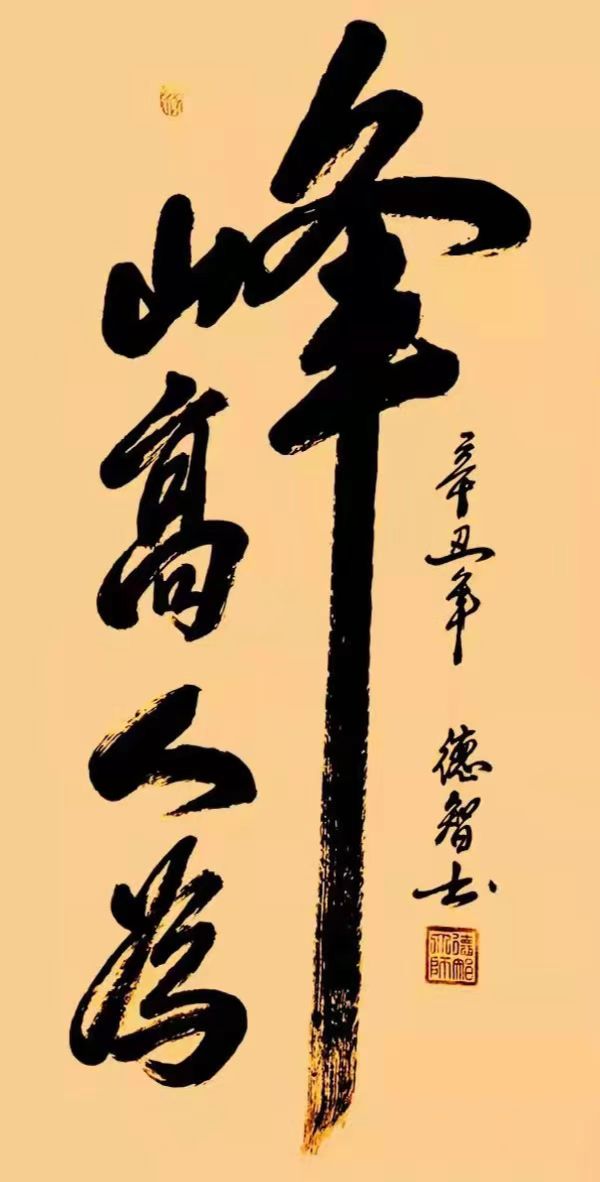 山高人為峰
辛丑年 德智书